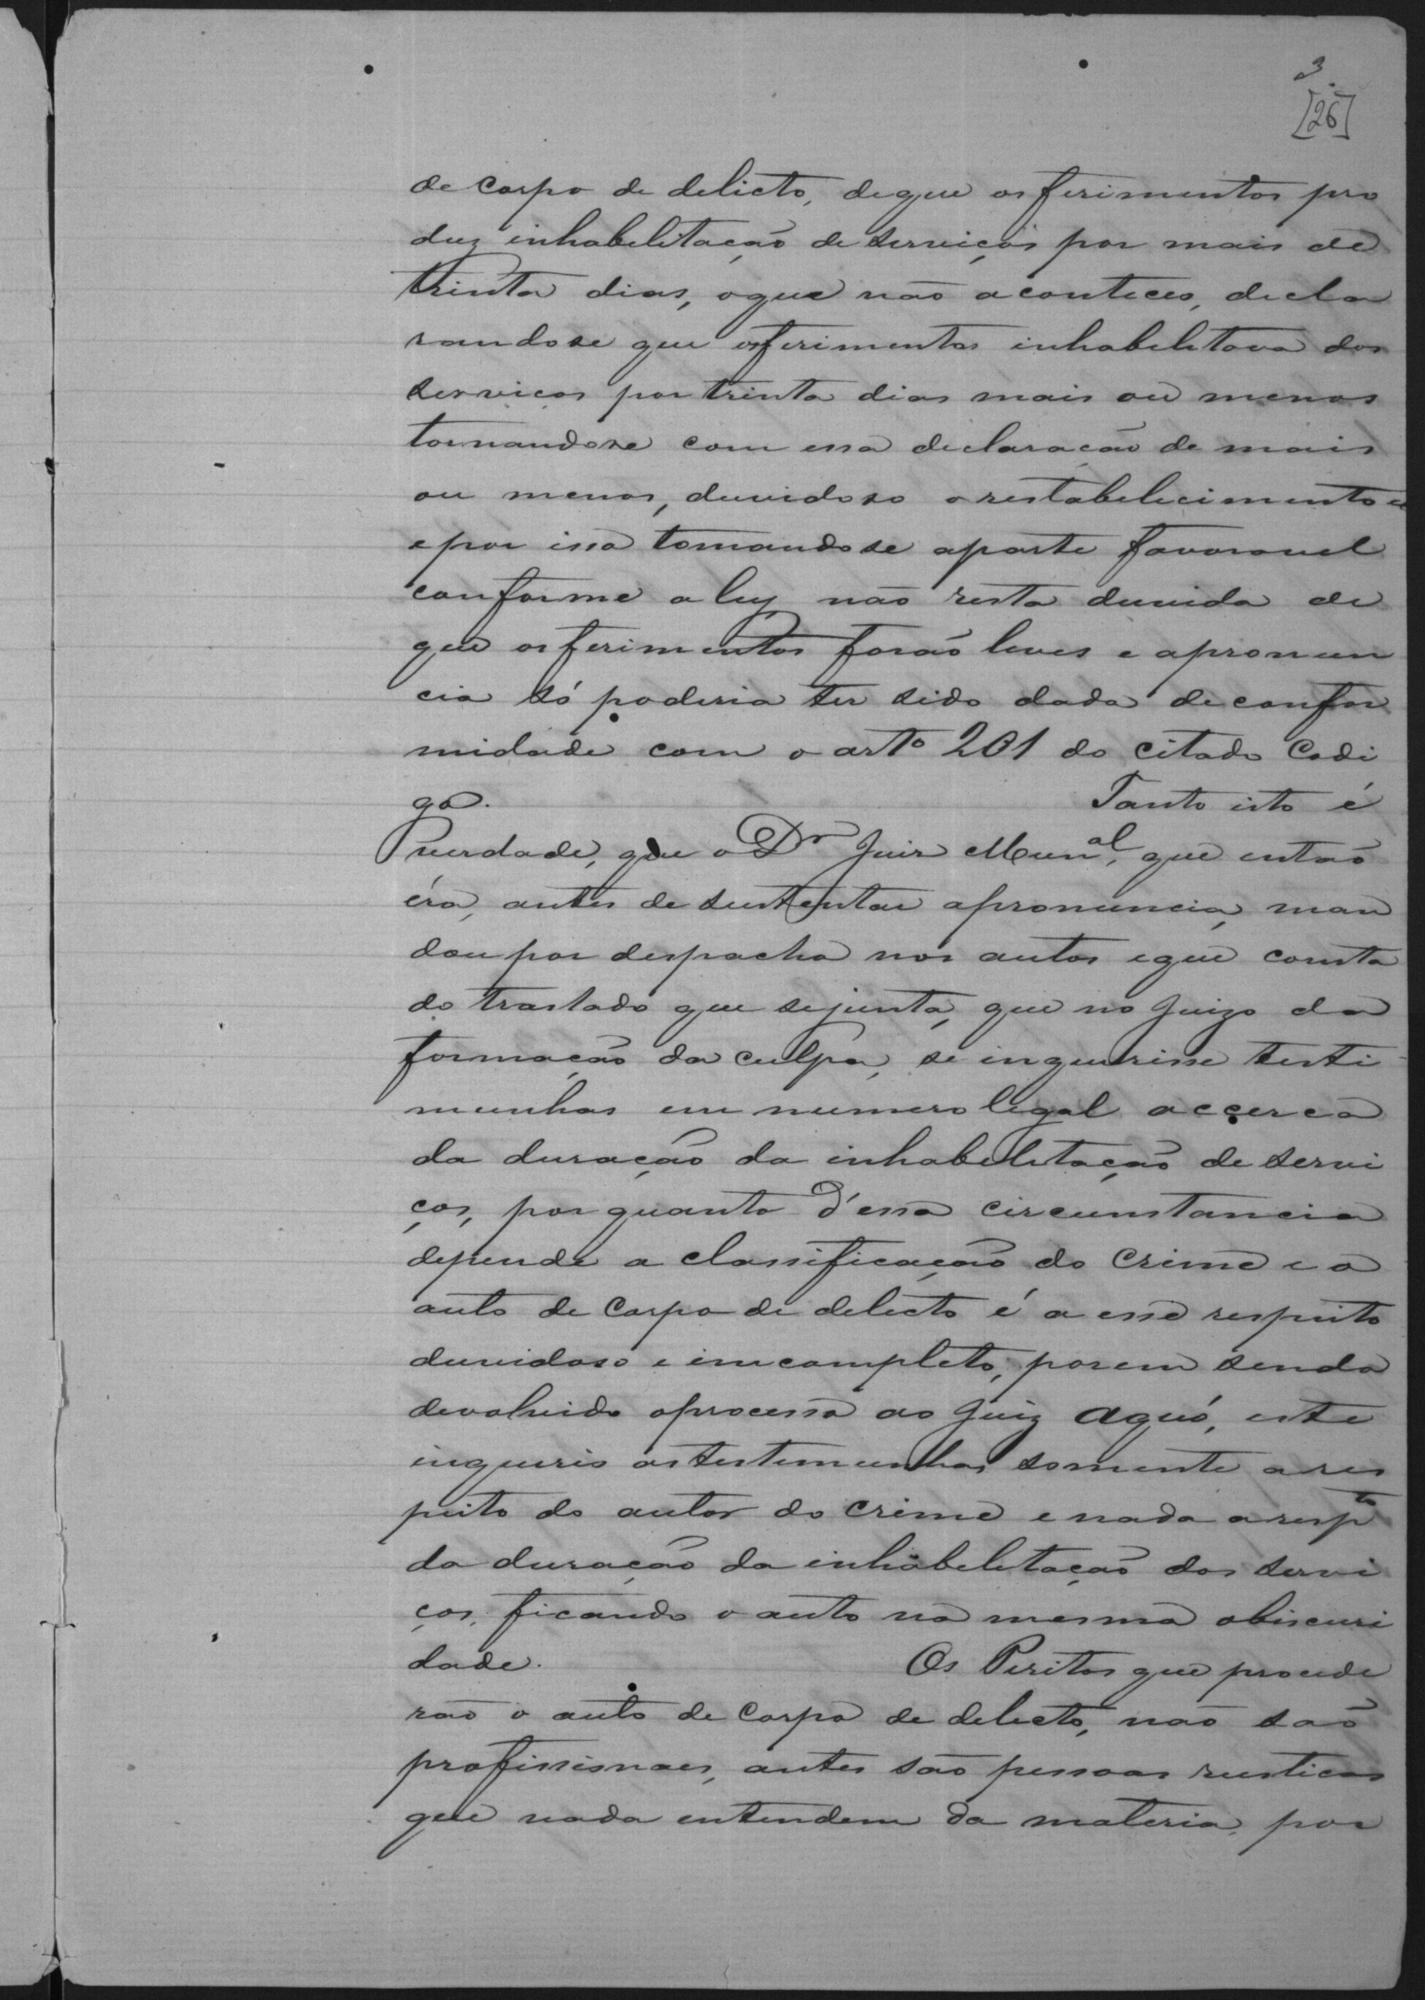 3
[26]
de corpo de delicto, de que os ferimentos pro
duz inhabelitação de serviços por mais de
trinta dias, o que não aconteceo, decla
randose que os ferimentos inhabeletava dos
serviços por trinta dias mais ou menos
tornandose com essa declaração de mais
ou menos, duvidoso o restabelecimento e
e por isso tomandose a parte favoravel
conforme a ley não resta duvida de
que os ferimentos forão leves e a pronun
cia só poderia ter sido dada de confor
midade com o artº 201 do citado Codi
go. Tanto isto é
verdade, que o Dr Juiz Munal, que então
éra, antes de sustentar a pronuncia, man
dou por despacho nos autos e que consta
do traslado que se junta, que no Juizo da
formação da culpa, se inquerisse testi
munhas em numero legal accerca
da duração da inhabeletação de servi
ços, por quanto d'essa circumstancia
depende a classificação do crime e o
auto de corpo de delecto é a esse respeito
duvidoso e imcompleto, porem sendo
devolvido o processo ao Juiz aquó, este
inquerio as testemunhas somente a res
peito do autor do crime e nada a respto
da duração da inhabeletação dos servi
ços, ficando o auto na mesma obiscuri
dade. Os Peritos que procede
rão o auto de corpo de delecto, não são
profissionaes, antes são pessoas rusticas
que nada entendem da materia, por